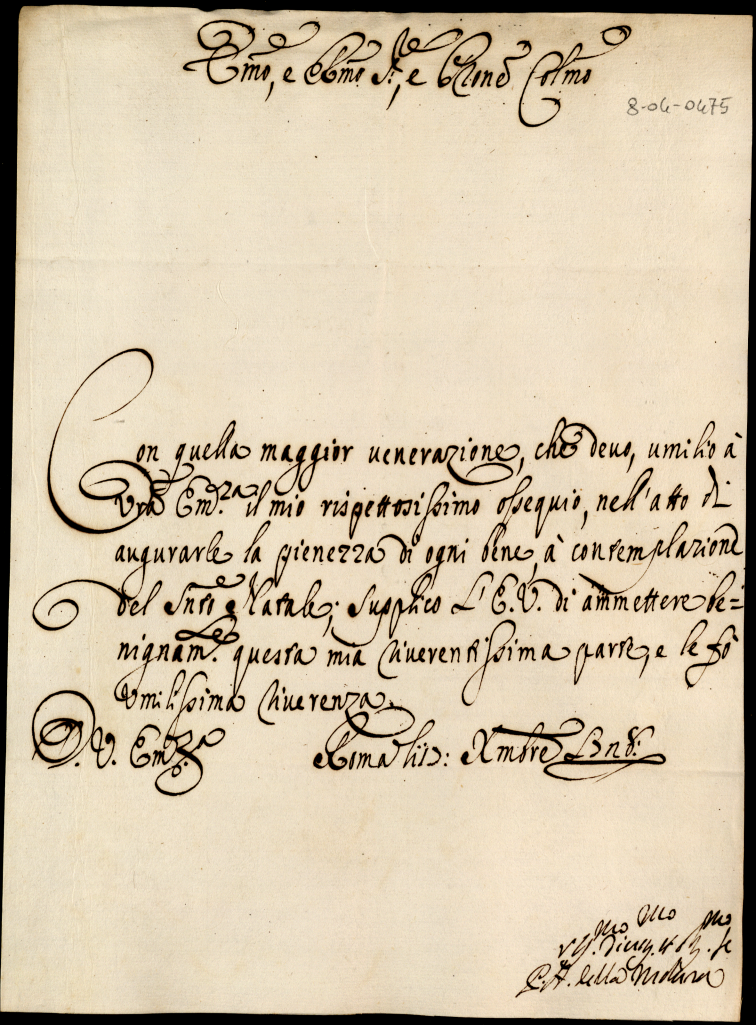 Emo, e Rmo Sr, e Prone Colmo
8-04-0475
Con quella maggior venerazione, che devo, umilio à
Vra Em.za il mio rispettosissimo ossequio, nell'atto di
augurarle la pienezza di ogni bene, à contemplazione
del Snto Natale; supplico L'E.V. di ammettere be=
nignam.te questa mia riverentissima parte, e le fò
umilissima riverenza.
D. V. Em.za Roma li : Xmbre
della Molara